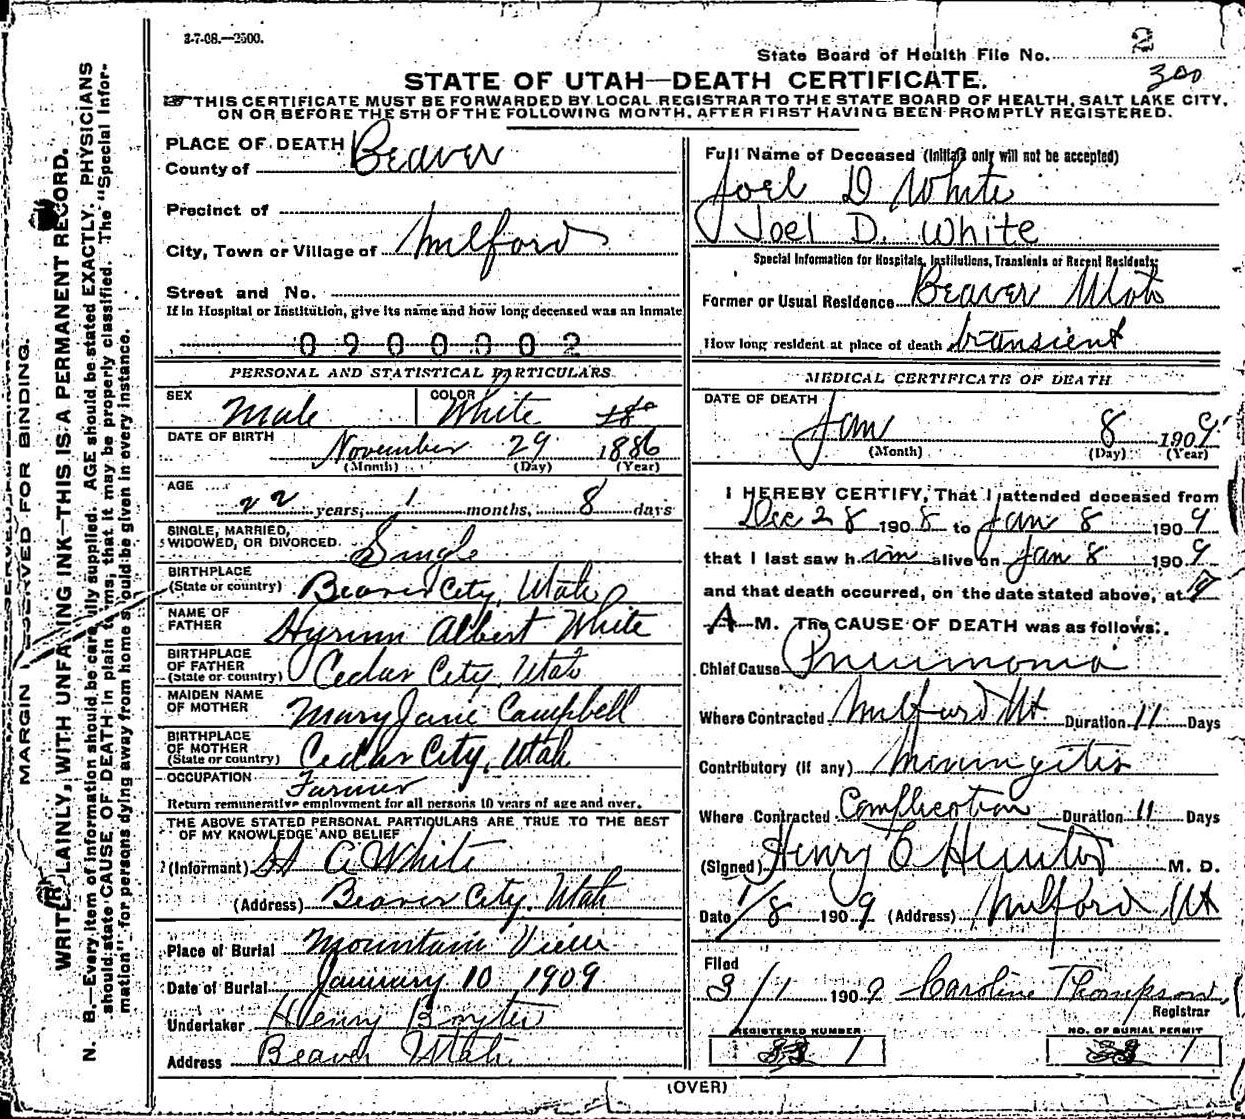 2-7-08.—2500.
State Board of Health File No. 2
300
STATE OF UTAH—DEATH CERTIFICATE.
THIS CERTIFICATE MUST BE FORWARDED BY LOCAL REGISTRAR TO THE STATE BOARD OF HEALTH, SALT LAKE CITY,
ON OR BEFORE THE 5TH OF THE FOLLOWING MONTH, AFTER FIRST HAVING BEEN PROMPTLY REGISTERED.
MARGIN RESERVED FOR BINDING.
WRITE PLAINLY, WITH UNFADING INK—THIS IS A PERMANENT RECORD.
N. B.—Every item of information should be carefully supplied. AGE should be stated EXACTLY. PHYSICIANS
should state CAUSE OF DEATH in plain terms, that it may be properly classified. The "Special Infor-
mation" for persons dying away from home should be given in every instance.
PLACE OF DEATH
County of Beaver
Precinct of
City, Town or Village of Milford
Street and No.
If in Hospital or Institution, give its name and how long deceased was an inmate
0900002
PERSONAL AND STATISTICAL PARTICULARS
SEX Male
COLOR White
DATE OF BIRTH November 29 1886
(Month) (Day) (Year)
AGE 22 years, 1 months, 8 days
SINGLE, MARRIED,
WIDOWED, OR DIVORCED. Single
BIRTHPLACE
(State or country) Beaver City, Utah
NAME OF
FATHER Hyrum Albert White
BIRTHPLACE
OF FATHER
(State or country) Cedar City, Utah
MAIDEN NAME
OF MOTHER Mary Jane Campbell
BIRTHPLACE
OF MOTHER
(State or country) Cedar City, Utah
OCCUPATION Farmer
Return remunerative employment for all persons 10 years of age and over.
THE ABOVE STATED PERSONAL PARTICULARS ARE TRUE TO THE BEST
OF MY KNOWLEDGE AND BELIEF
(Informant) H A White
(Address) Beaver City, Utah
Place of Burial Mountain View
Date of Burial January 10 1909
Undertaker Henry
Address Beaver Utah.
Full Name of Deceased (Initials only will not be accepted)
Joel D White
Joel D. White
Special Information for Hospitals, Institutions, Transients or Recent Residents:
Former or Usual Residence Beaver Utah
How long resident at place of death transient
MEDICAL CERTIFICATE OF DEATH
DATE OF DEATH
Jan 8 1909
(Month) (Day) (Year)
I HEREBY CERTIFY, That I attended deceased from
Dec 28 1908 to Jan 8 1909
that I last saw him alive on Jan 8 1909
and that death occurred, on the date stated above, at
A M. The CAUSE OF DEATH was as follows:
Chief Cause Pneumonia
Where Contracted Milford Ut. Duration 11 Days
Contributory (if any) Meningitis
Where Contracted Complication Duration 11 Days
(Signed) Henry E Hunter M. D.
Date 1/8 1909 (Address) Milford Ut
Filed
3/1 1909 Caroline Thompson,
Registrar
REGISTERED NUMBER
1
NO. OF BURIAL PERMIT
1
(OVER)